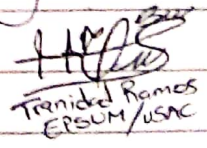 Trinidad Ramos
EPSUM/USAC